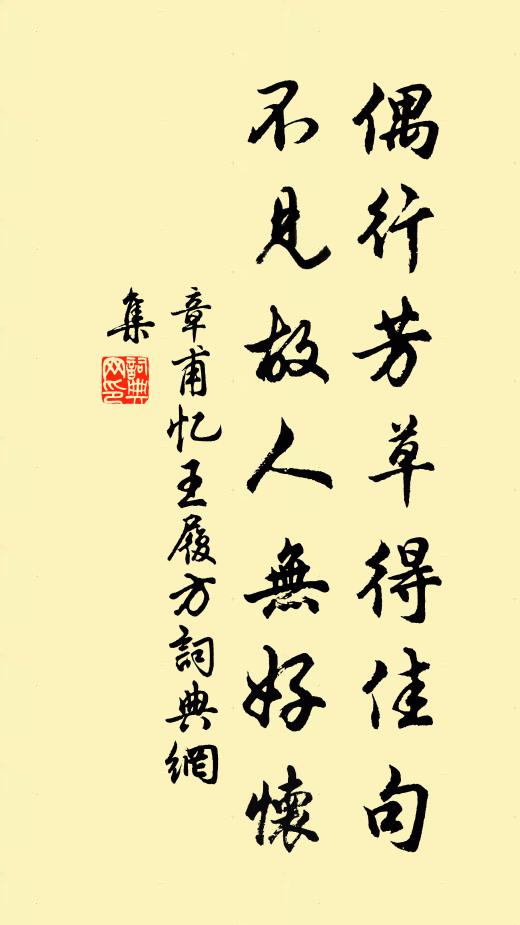 偶行芳草得佳句
不見故人無好懷
章甫忆王履方詞典網
集
詞典
网印